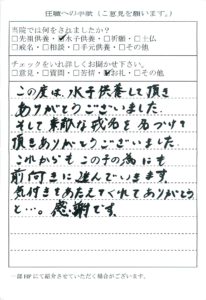 住職への手紙（ご意見を願います。）
当院では何をされましたか？
□先祖供養・☑水子供養・□祈願・□上仏
□戒名・□相談・□手元供養・□その他
チェックをいれ詳しくお聞かせ下さい。
□意見・□質問・□苦情・☑お礼・□その他
この度は、水子供養して頂き
ありがとうございました。
そして素敵な戒名を名づけて
頂きありがとうございました。
これからも この子の為にも
前付きに進んでいきます。
気付きをあたえてくれてありがとう
と…。感謝です。
一部HPにて紹介させていただく場合がございます。